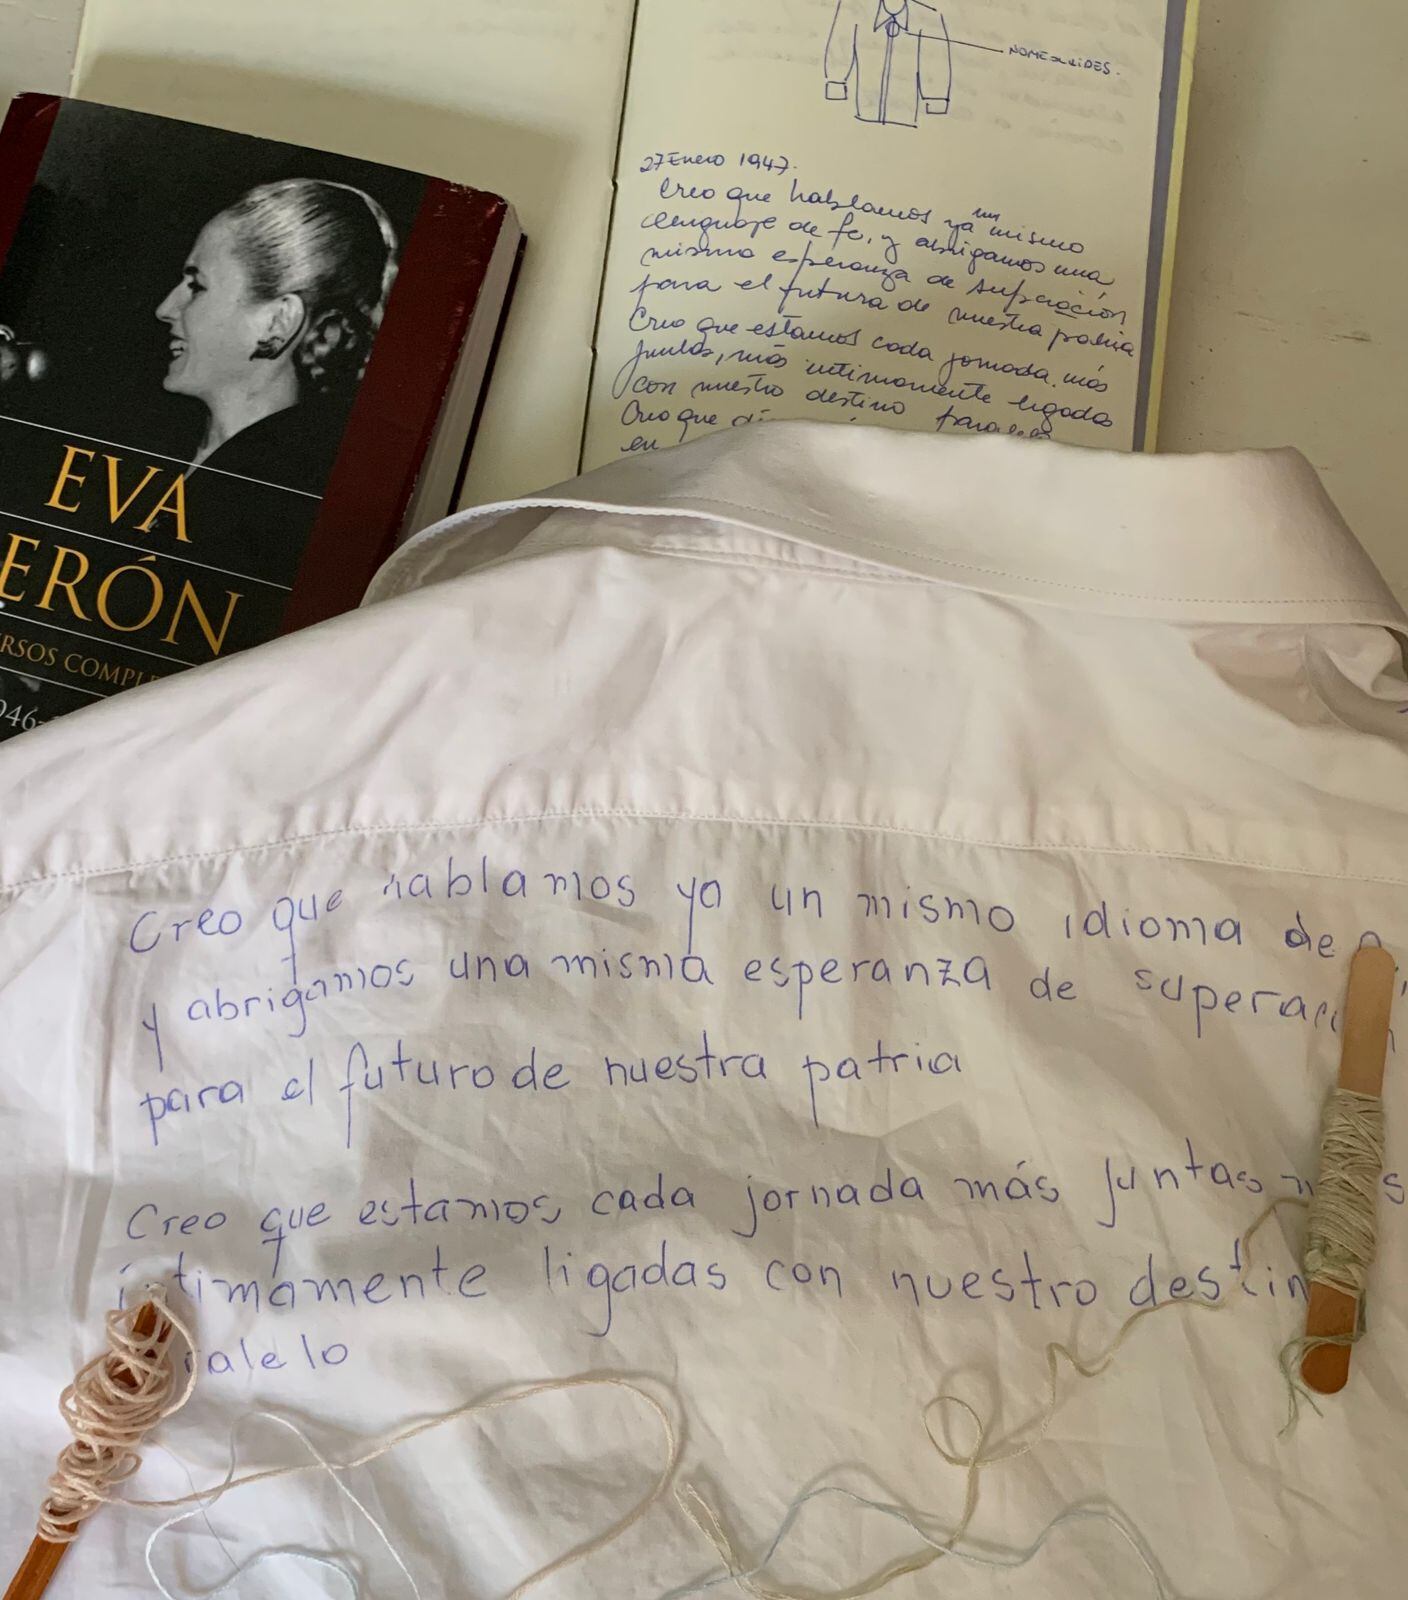 NOMEOLVIDES.
27 Enero 1947.
Creo que hablamos ya un mismo
lenguaje de fe, y abrigamos una
misma esperanza de superación
para el futuro de nuestra patria
Creo que estamos cada jornada más
juntas, más intimamente ligadas
con nuestro destino paralelo
Creo que
en
EVA
ERÓN
RSOS COMPLE
946-
Creo que hablamos ya un mismo idioma de
y abrigamos una misma esperanza de superac n
para el futuro de nuestra patria
Creo que estamos cada jornada más juntas m s
íntimamente ligadas con nuestro destin
ralelo